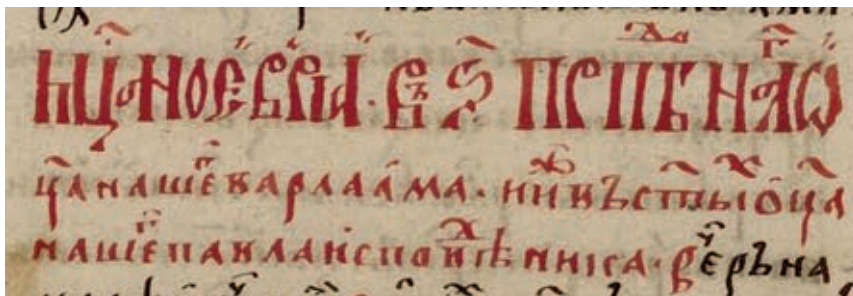 мцⷭ҇а ноеврїа. въ ѕ҃ прпⷣбнаⷢ ѡ
ц҃а нашеⷢ варлаама. и иⷤ въ ст҃ыⷯ ѻц҃а
нашеⷢ павла исповⷣѣника. веⷱръ на